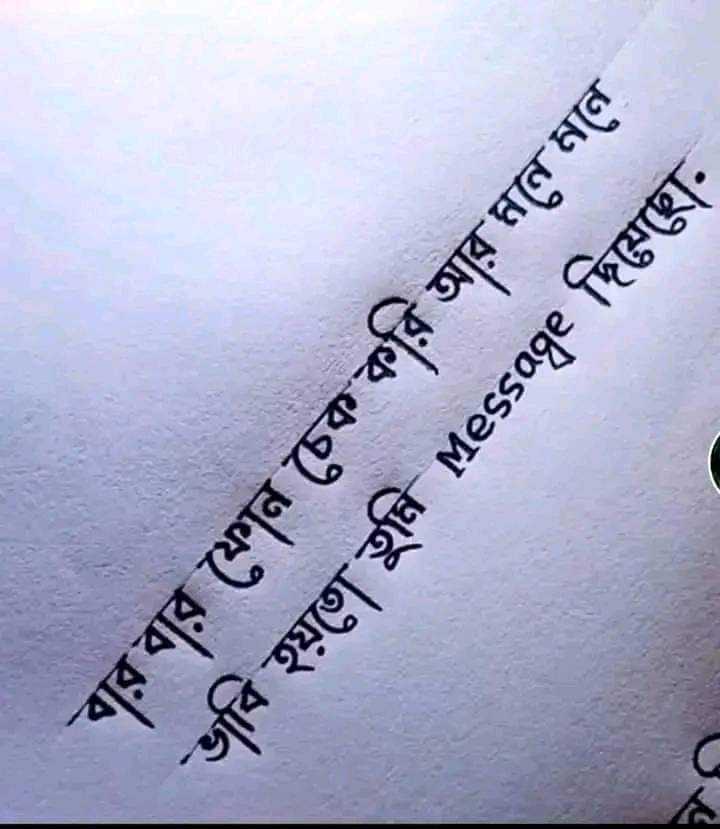 বার বার ফোন চেক করি আর মনে মনে
ভাবি হয়তো তুমি Message দিয়েছো.